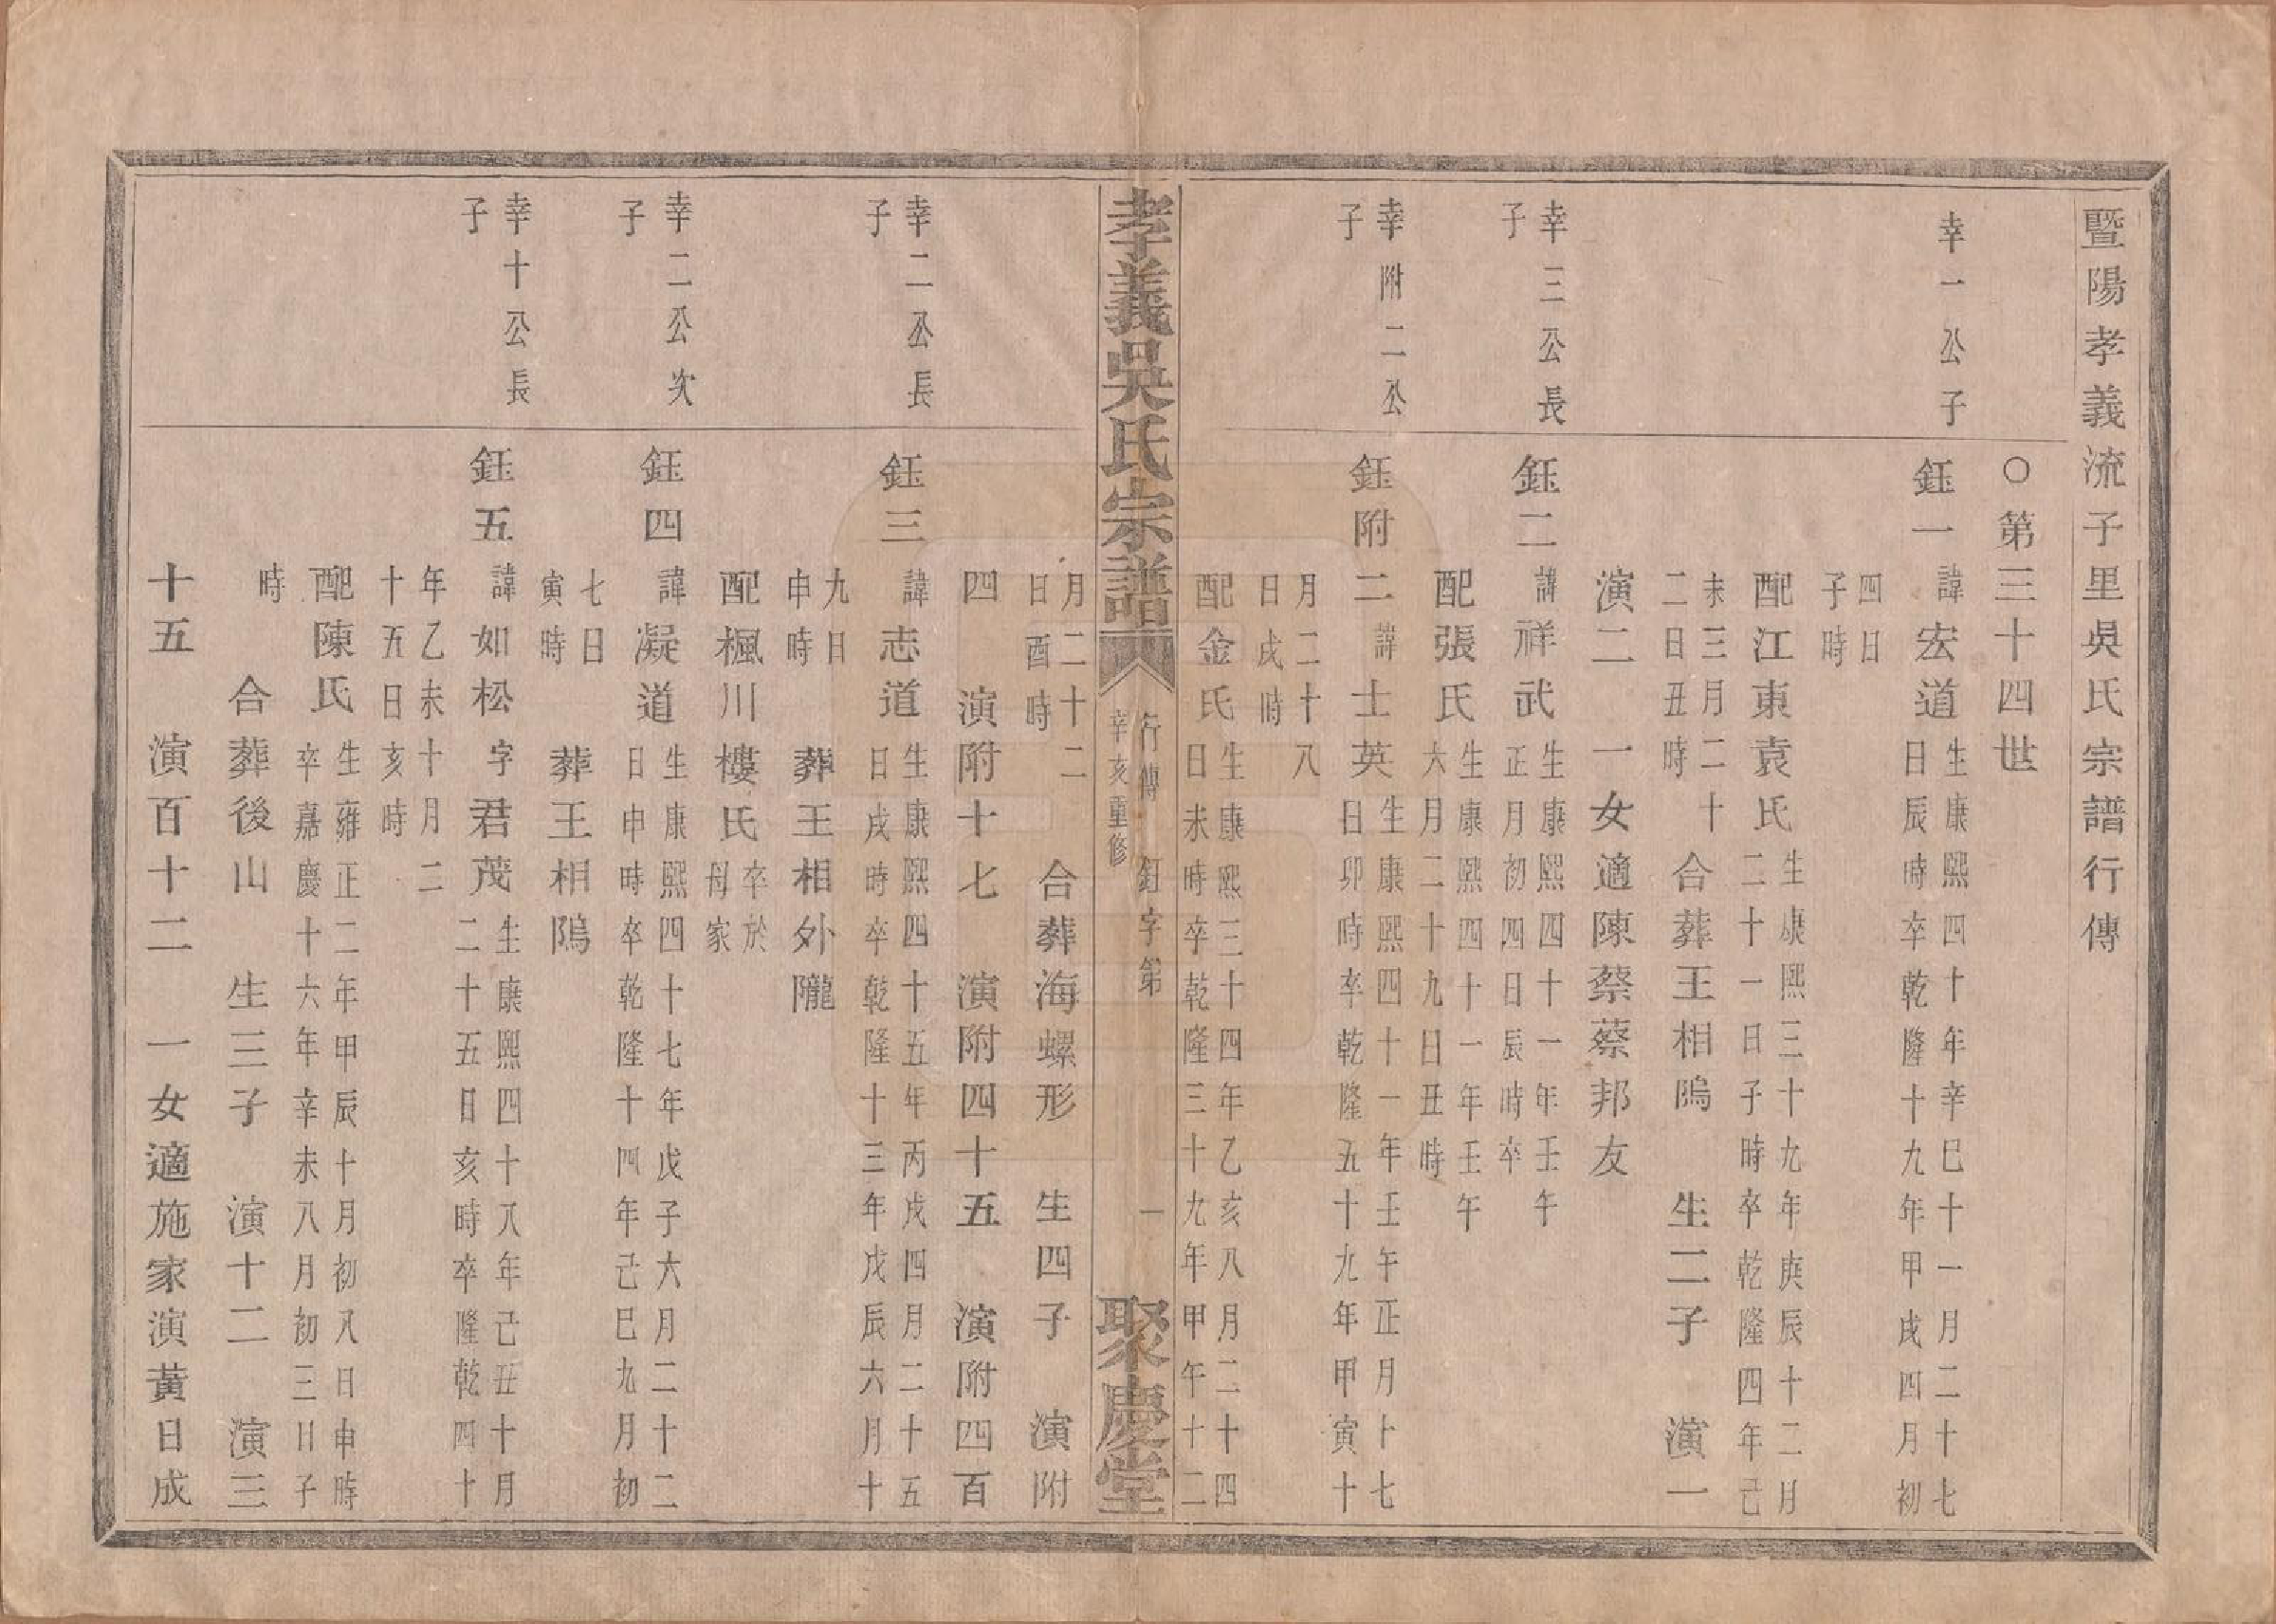 暨陽孝義流子里吳氏宗譜行傳
○第三十四世
幸一公子
鈺一
諱宏道
生康熙四十年辛巳十一月二十七
日辰時卒乾隆十九年甲戌四月初
四日
子時
配江東袁氏
生康熙三十九年庚辰十二月
二十一日子時卒乾隆四年己
未三月二十
二日丑時
合葬王相隖 生二子 演一
演二 一女適陳蔡蔡邦友
幸三公長
子
鈺二
諱祥武
生康熙四十一年壬午
正月初四日辰時卒
配張氏
生康熙四十一年壬午
六月二十九日丑時
幸附二公
子
鈺附二
諱士英
生康熙四十一年壬午正月卜七
日卯時卒乾隆五十九年甲寅十
月二十八
日戌時
配金氏
生康熙三十四年乙亥八月二十四
日未時卒乾隆三十九年甲午十二
孝義吳氏宗譜
行傳 鈺字第 一
辛亥重修
聚慶堂
月二十二
日酉時
合葬海螺形 生四子 演附
四 演附十七 演附四十五 演附四百
幸二公長
子
鈺三
諱志道
生康熙四十五年丙戌四月二十五
日戌時卒乾隆十三年戊辰六月十
九日
申時
葬王相外隴
配楓川樓氏
卒於
母家
幸二公次
子
鈺四
諱凝道
生康熙四十七年戊子六月二十二
日申時卒乾隆十四年己巳九月初
七日
寅時
葬王相隖
幸十公長
子
鈺五
諱如松
字君茂
生康熙四十八年己丑十月
二十五日亥時卒隆乾四十
年乙未十月二
十五日亥時
配陳氏
生雍正二年甲辰十月初八日申時
卒嘉慶十六年辛未八月初三日子
時
合葬後山 生三子 演十二 演三
十五 演百十二 一女適施家演黃日成